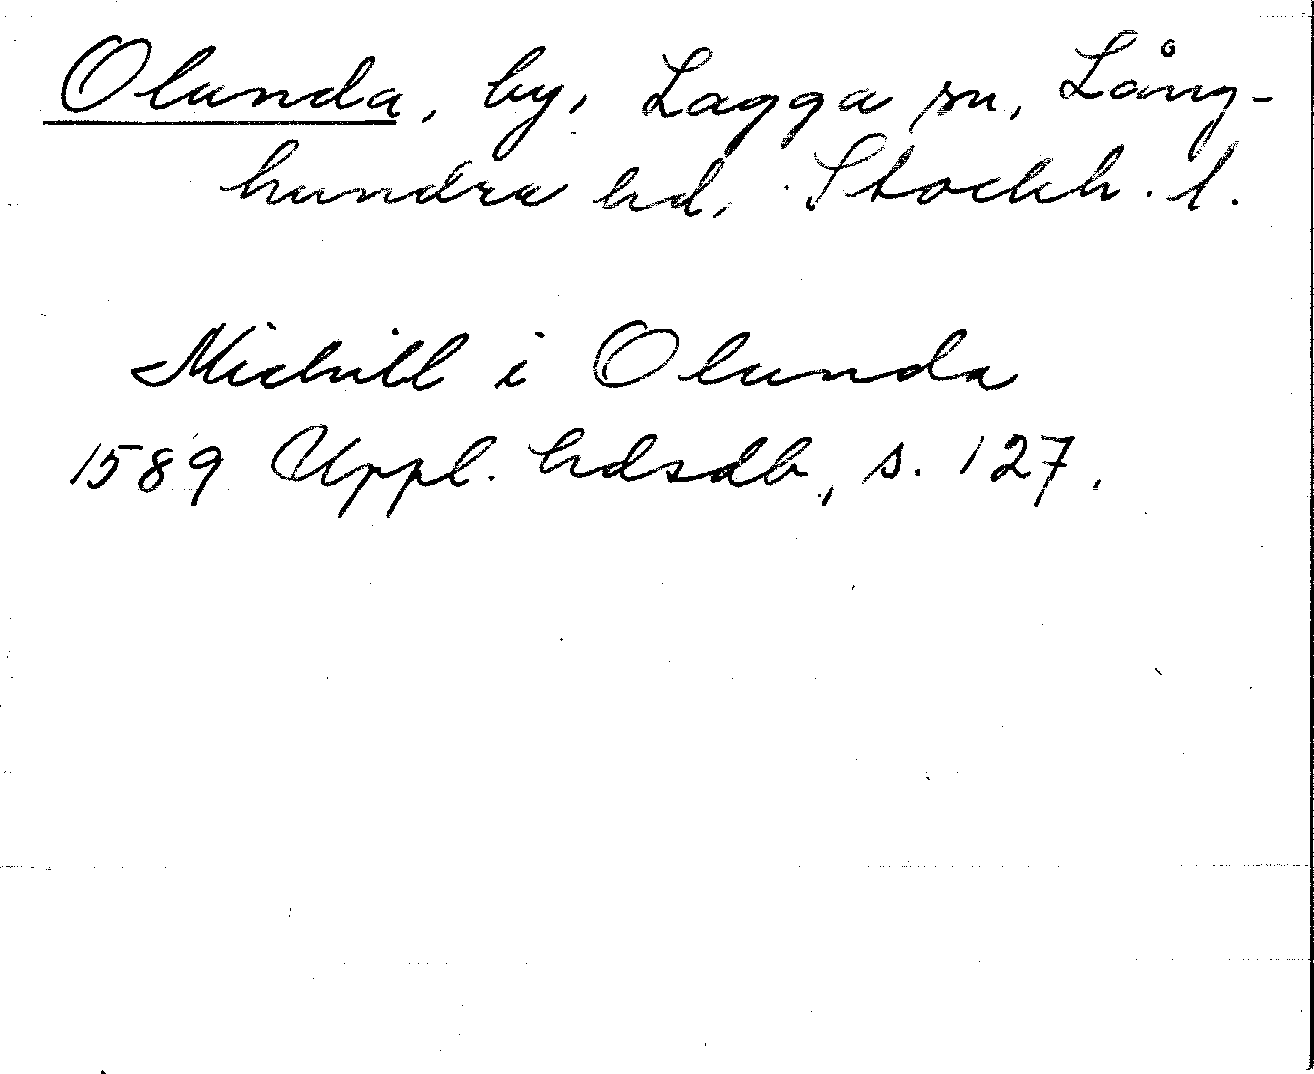 Olunda, by, Lagga sn, Lång-
hundra hd, Stockh. l.
Michill i Olunda
1589 Uppl. hdsdb, s. 127.